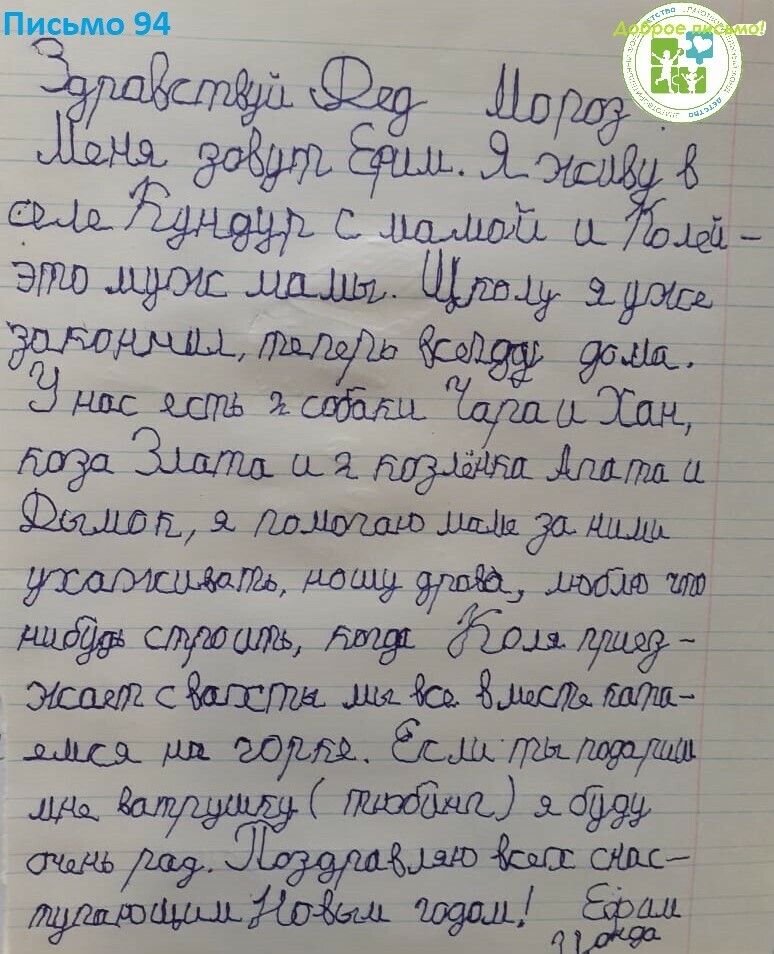 Письмо 94
Доброе письмо!
Здравствуй Дед Мороз.
Меня зовут Ефим. Я живу в
селе Кундур с мамой и Колей –
это муж мамы. Школу я уже
закончил, теперь всегда дома.
У нас есть 2 собаки Чара и Хан,
коза Злата и 2 козлёнка Агата и
Дымок, я помогаю маме за ними
ухаживать, ношу дрова, люблю что
нибудь строить, когда Коля приез-
жает с вахты мы все вместе ката-
емся на горке. Если ты подариш
мне ватрушку (тюбинг) я буду
очень рад. Поздравляю всех с нас-
тупающим Новым годом! Ефим